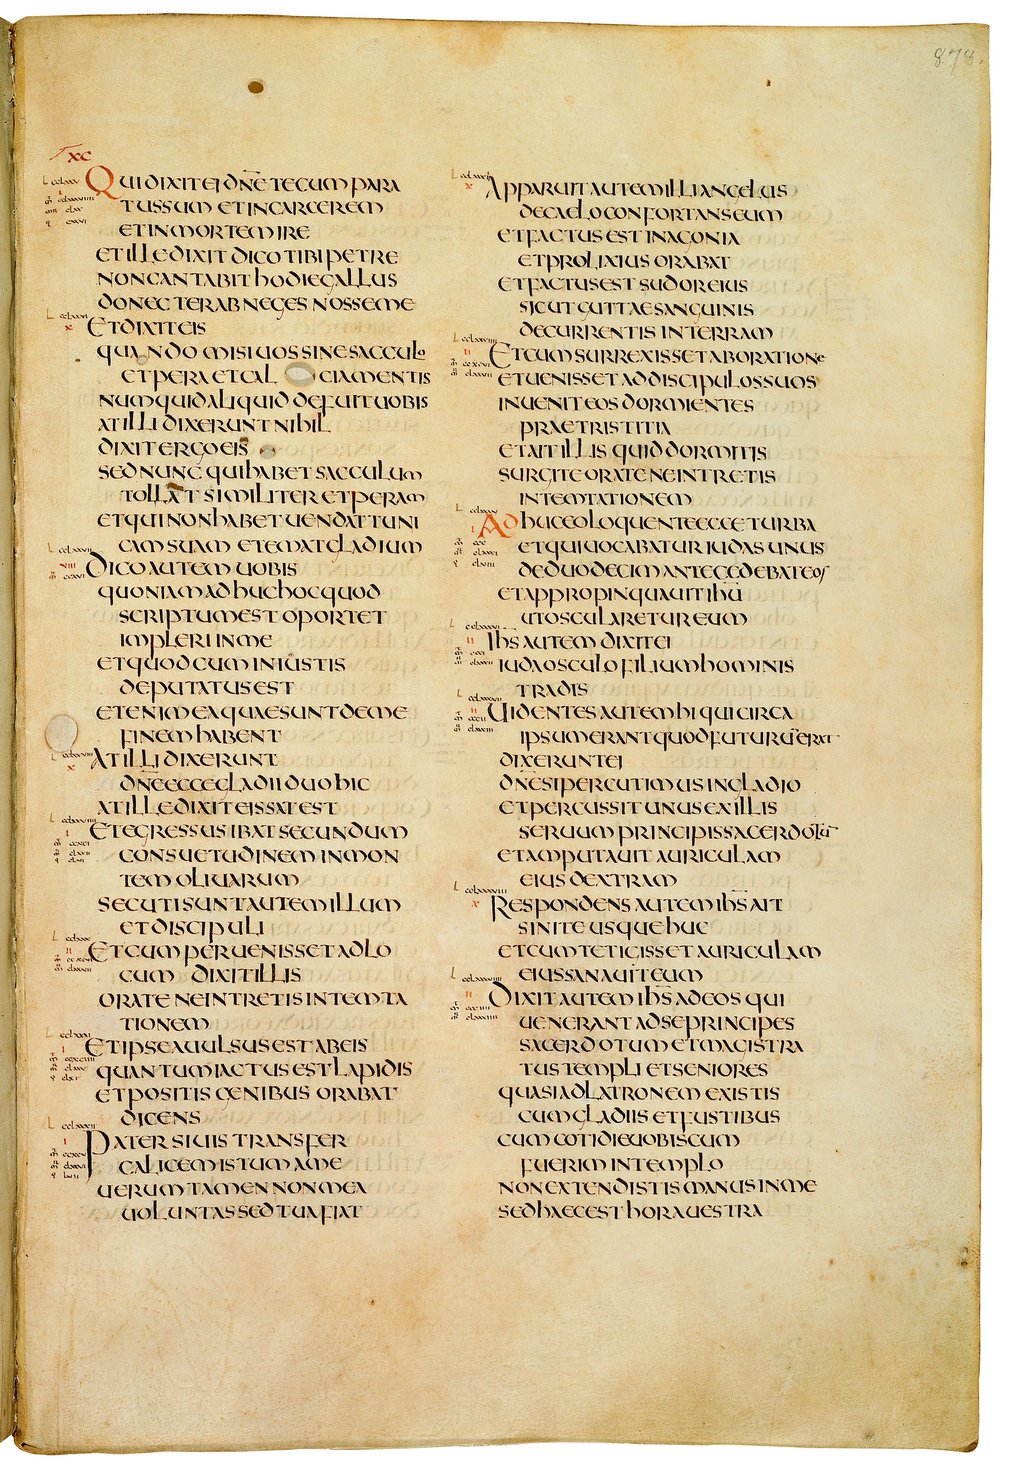 878.
xc
QUI DIXIT EI DNE TECUM PARA
TUS SUM ET IN CARCEREM
ET IN MORTEM IRE
ET ILLE DIXIT DICO TIBI PETRE
NON CANTABIT HODIE GALLUS
DONEC TER ABNEGES NOSSE ME
ET DIXIT EIS
QUANDO MISI UOS SINE SACCULO
ET PERA ET CAL CIAMENTIS
NUMQUID ALIQUID DEFUIT UOBIS
AT ILLI DIXERUNT NIHIL
DIXIT ERGO EIS
SED NUNC QUI HABET SACCULUM
TOLLAT SIMILITER ET PERAM
ET QUI NON HABET UENDAT TUNI
CAM SUAM ET EMAT GLADIUM
DICO AUTEM UOBIS
QUONIAM ADHUC HOC QUOD
SCRIPTUM EST OPORTET
IMPLERI IN ME
ET QUOD CUM INIUSTIS
DEPUTATUS EST
ETENIM EA QUAE SUNT DE ME
FINEM HABENT
AT ILLI DIXERUNT
DNE ECCE GLADII DUO HIC
AT ILLE DIXIT EIS SAT EST
ET EGRESSUS IBAT SECUNDUM
CONSUETUDINEM IN MON
TEM OLIUARUM
SECUTI SUNT AUTEM ILLUM
ET DISCIPULI
ET CUM PERUENISSET AD LO
CUM DIXIT ILLIS
ORATE NE INTRETIS IN TEMTA
TIONEM
ET IPSE AUULSUS EST AB EIS
QUANTUM IACTUS EST LAPIDIS
ET POSITIS GENIBUS ORABAT
DICENS
PATER SI UIS TRANSFER
CALICEM ISTUM A ME
UERUM TAMEN NON MEA
UOLUNTAS SED TUA FIAT
APPARUIT AUTEM ILLI ANGELUS
DE CAELO CONFORTANS EUM
ET FACTUS EST IN AGONIA
ET PROLIXIUS ORABAT
ET FACTUS EST SUDOR EIUS
SICUT GUTTAE SANGUINIS
DECURRENTIS IN TERRAM
ET CUM SURREXISSET AB ORATIONE
ET UENISSET AD DISCIPULOS SUOS
INUENIT EOS DORMIENTES
PRAE TRISTITIA
ET AIT ILLIS QUID DORMITIS
SURGITE ORATE NE INTRETIS
IN TEMTATIONEM
ADHUC EO LOQUENTE ECCE TURBA
ET QUI UOCABATUR IUDAS UNUS
DE DUODECIM ANTECEDEBAT EOS
ET APPROPINQUAUIT IHU
UT OSCULARETUR EUM
IHS AUTEM DIXIT EI
IUDA OSCULO FILIUM HOMINIS
TRADIS
UIDENTES AUTEM HI QUI CIRCA
IPSUM ERANT QUOD FUTURU ERAT
DIXERUNT EI
DNE SI PERCUTIMUS IN GLADIO
ET PERCUSSIT UNUS EX ILLIS
SERUUM PRINCIPIS SACERDOTU
ET AMPUTAUIT AURICULAM
EIUS DEXTRAM
RESPONDENS AUTEM IHS AIT
SINITE USQUE HUC
ET CUM TETIGISSET AURICULAM
EIUS SANAUIT EUM
DIXIT AUTEM IHS AD EOS QUI
UENERANT AD SE PRINCIPES
SACERDOTUM ET MAGISTRA
TUS TEMPLI ET SENIORES
QUASI AD LATRONEM EXISTIS
CUM GLADIIS ET FUSTIBUS
CUM COTIDIE UOBISCUM
FUERIM IN TEMPLO
NON EXTENDISTIS MANUS IN ME
SED HAEC EST HORA UESTRA